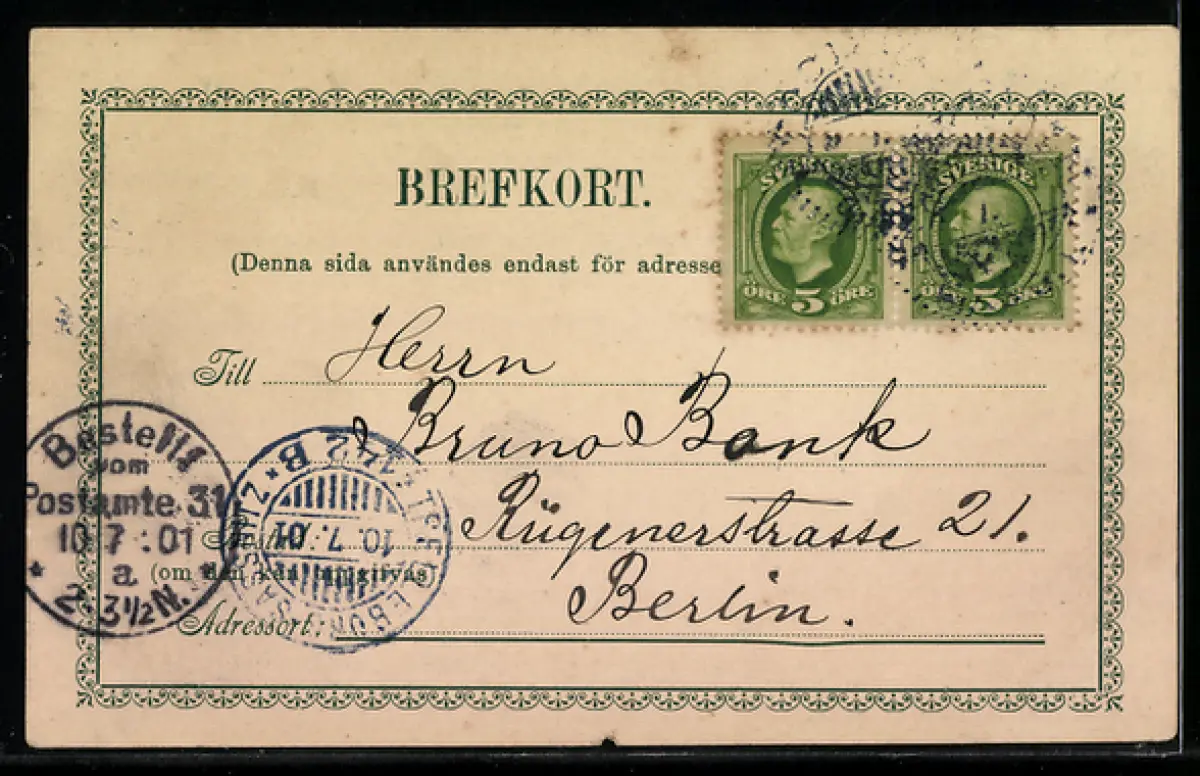 BREFKORT.
(Denna sida användes endast för adresse
SVERIGE
ÖRE 5 ÖRE
SVERIGE
ÖRE 5 ÖRE
Till Herrn
Bruno Bank
Rügenerstrasse 21.
Berlin.
(om den kan uppgifvas)
Adressort:
Bestellt
vom
Postamte 31
10 7 : 01
a
2 3½ N.
142 B
10. 7. 01
SASSNITZ